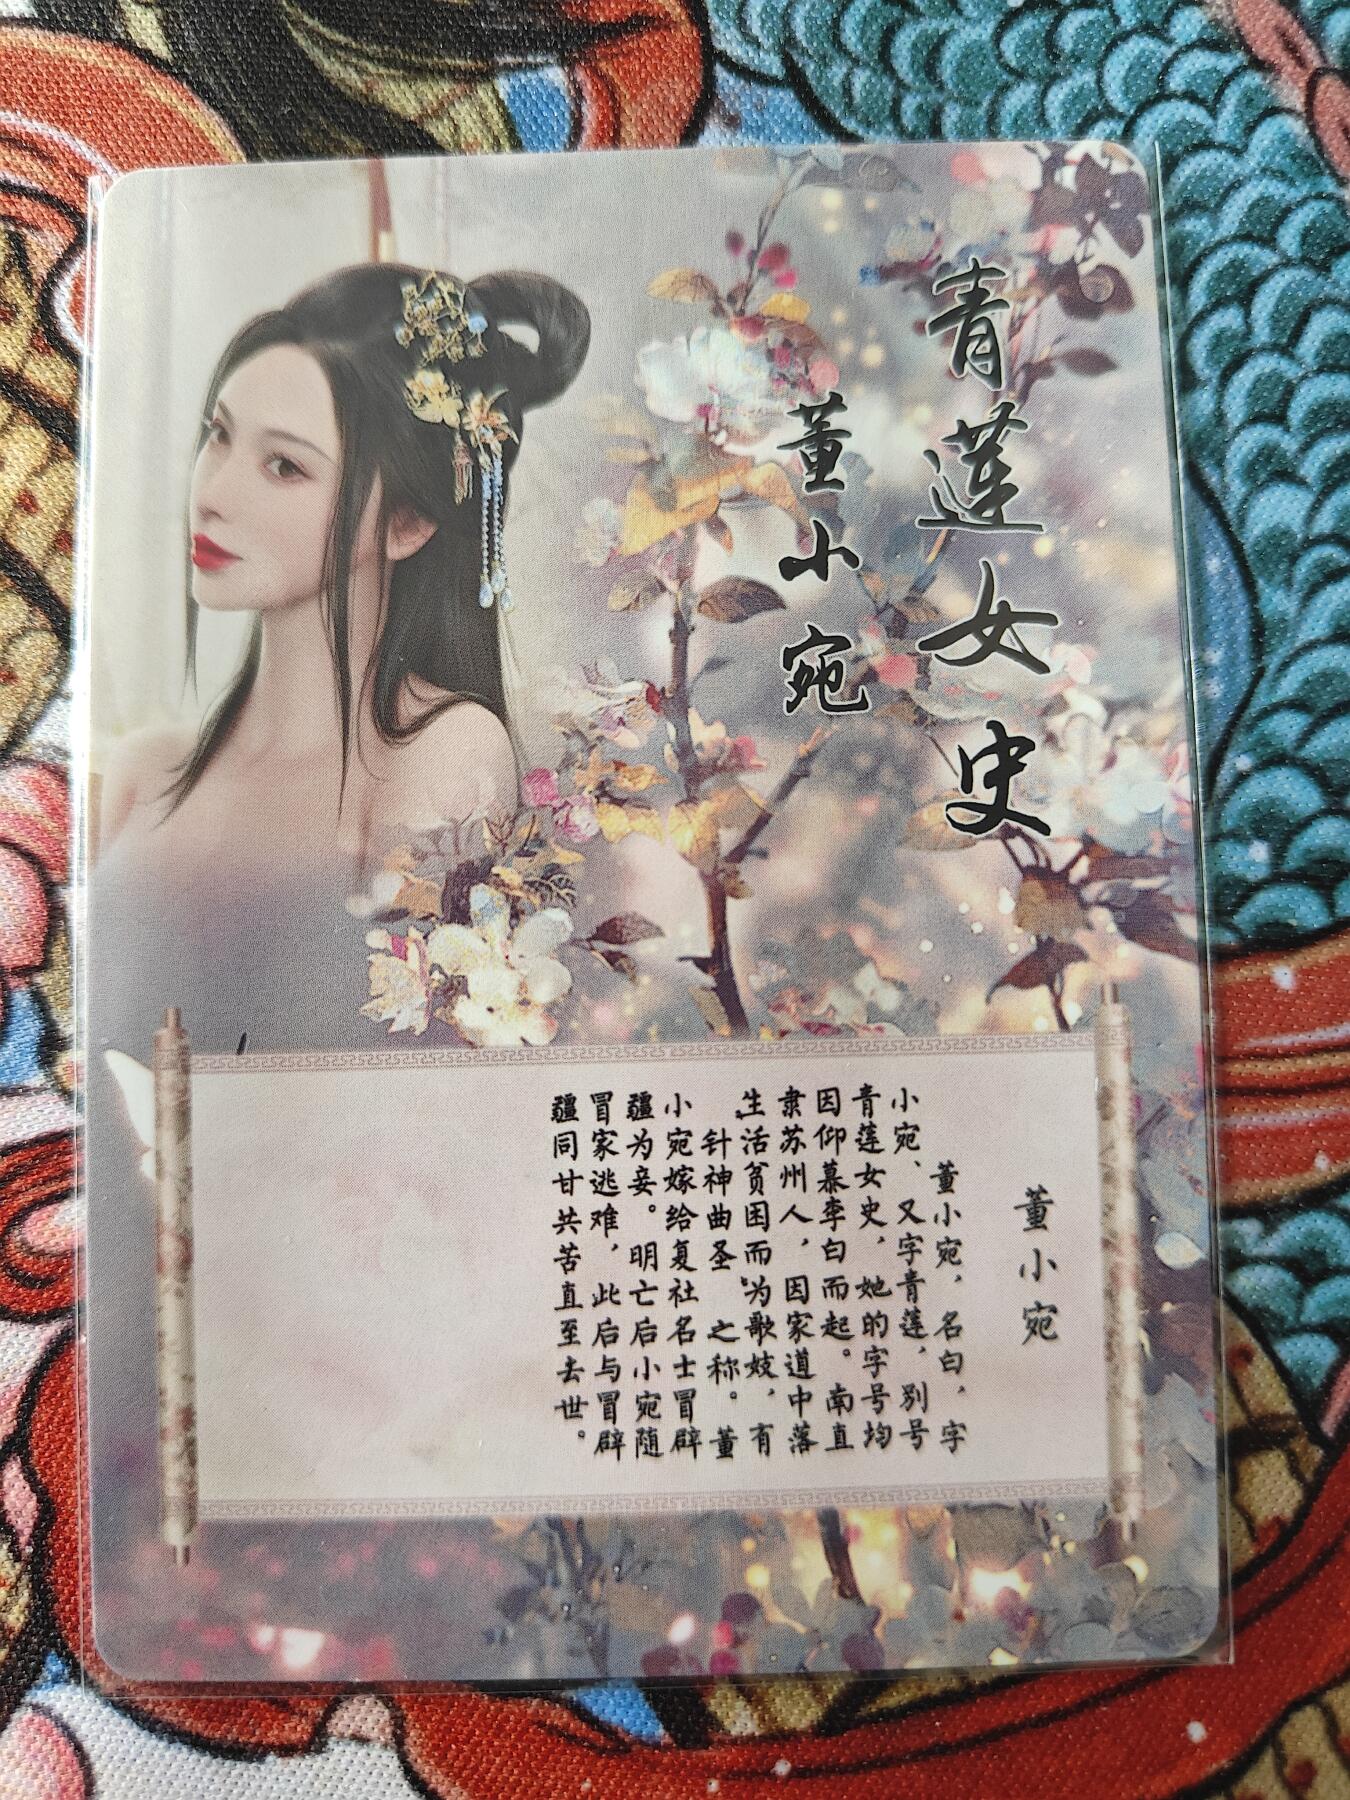 青莲女史
董小宛
董小宛
董小宛，名白，字
小宛、又字青莲，别号
青莲女史，她的字号均
因仰慕李白而起。南直
隶苏州人，因家道中落
生活贫困而为歌妓，有
“针神曲圣”之称。董
小宛嫁给复社名士冒辟
疆为妾。明亡后小宛随
冒家逃难，此后与冒辟
疆同甘共苦直至去世。